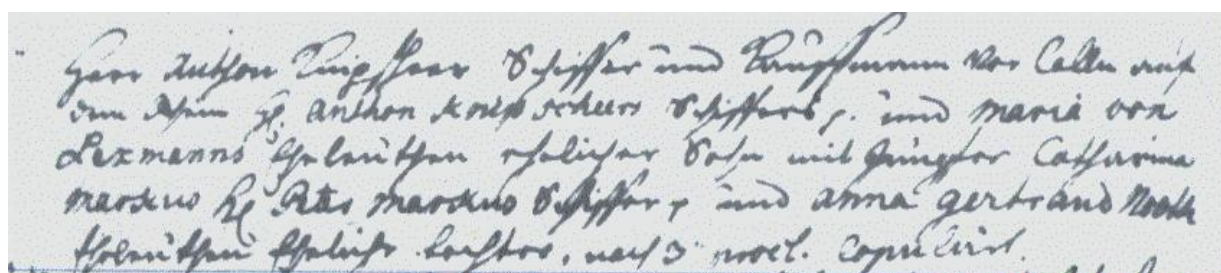 Herr Anthon Knipscheer Schiffer und Kauffmann von Cölln auf
dem Rhein H. Anthon Knipscheers Schiffers p. und Maria von
Lexmanns Eheleuthen ehelicher Sohn mit Jungfer Catharina
Marxus H. Marxus Schiffer p und Anna Gertraud
Eheleuthen Eheliche Tochter, nach 3 procl. copulirt.